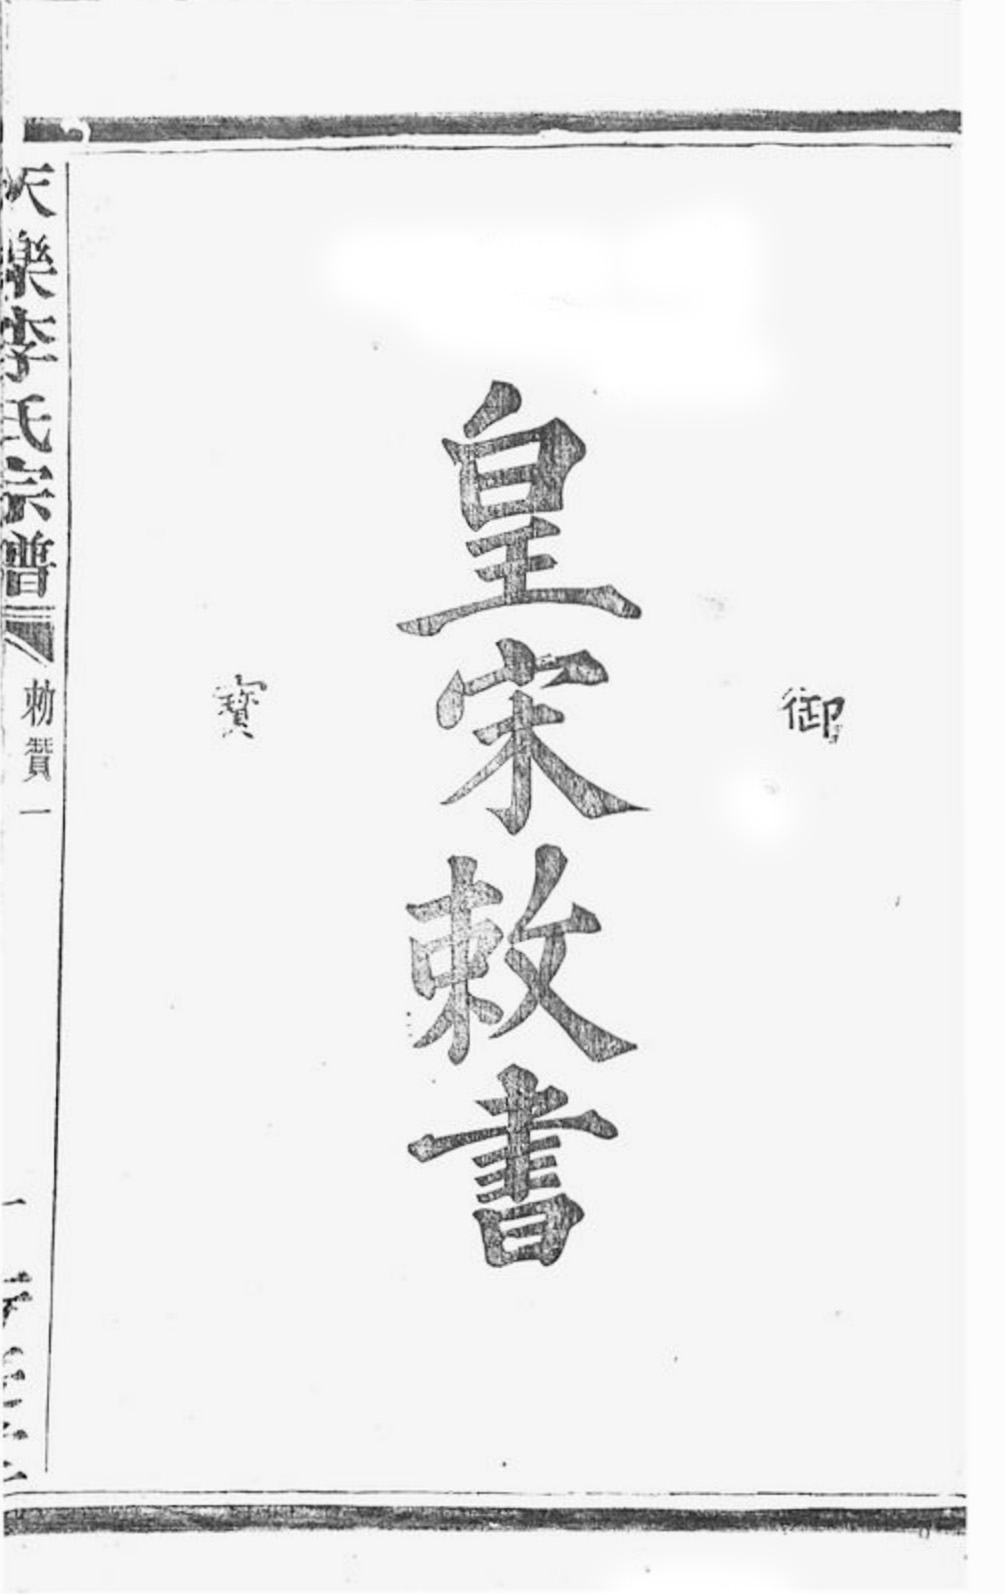 御
皇宋敕書
寶
天樂李氏宗譜
勅贊一